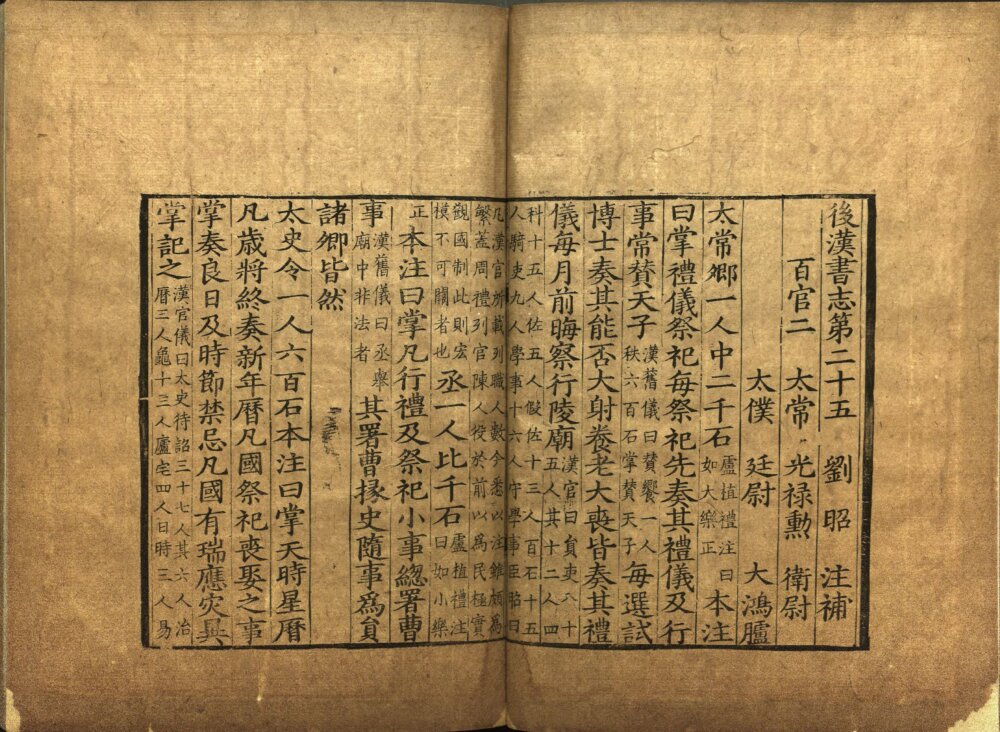 後漢書志第二十五 劉昭 注補
百官二 太常 光祿勳 衛尉
太僕 廷尉 大鴻臚
太常卿一人中二千石盧植禮注曰如大樂正本注
曰掌禮儀祭祀每祭祀先奏其禮儀及行
事常贊天子漢舊儀曰贊饗一人秩六百石掌贊天子每選試
博士奏其能否大射養老大喪皆奏其禮
儀每月前晦察行陵廟漢官曰員吏八十五人其十二人四
科十五人佐五人假佐十三人百石十五
人騎吏九人學事十六人守學事臣昭曰
凡漢官所載列職人數今悉以注雖頗為
繁蓋周禮列官陳人役於前以為民極實
觀國制此則宏模不可闕者也丞一人比千石盧植禮注曰如小樂
正本注曰掌凡行禮及祭祀小事緫署曹
事漢舊儀曰丞舉廟中非法者其署曹掾史隨事爲員
諸卿皆然
太史令一人六百石本注曰掌天時星曆
凡歲將終奏新年曆凡國祭祀喪娶之事
掌奏良日及時節禁忌凡國有瑞應灾異
掌記之漢官儀曰太史待詔三十七人其六人治曆三人龜十三人廬宅四人日時三人易